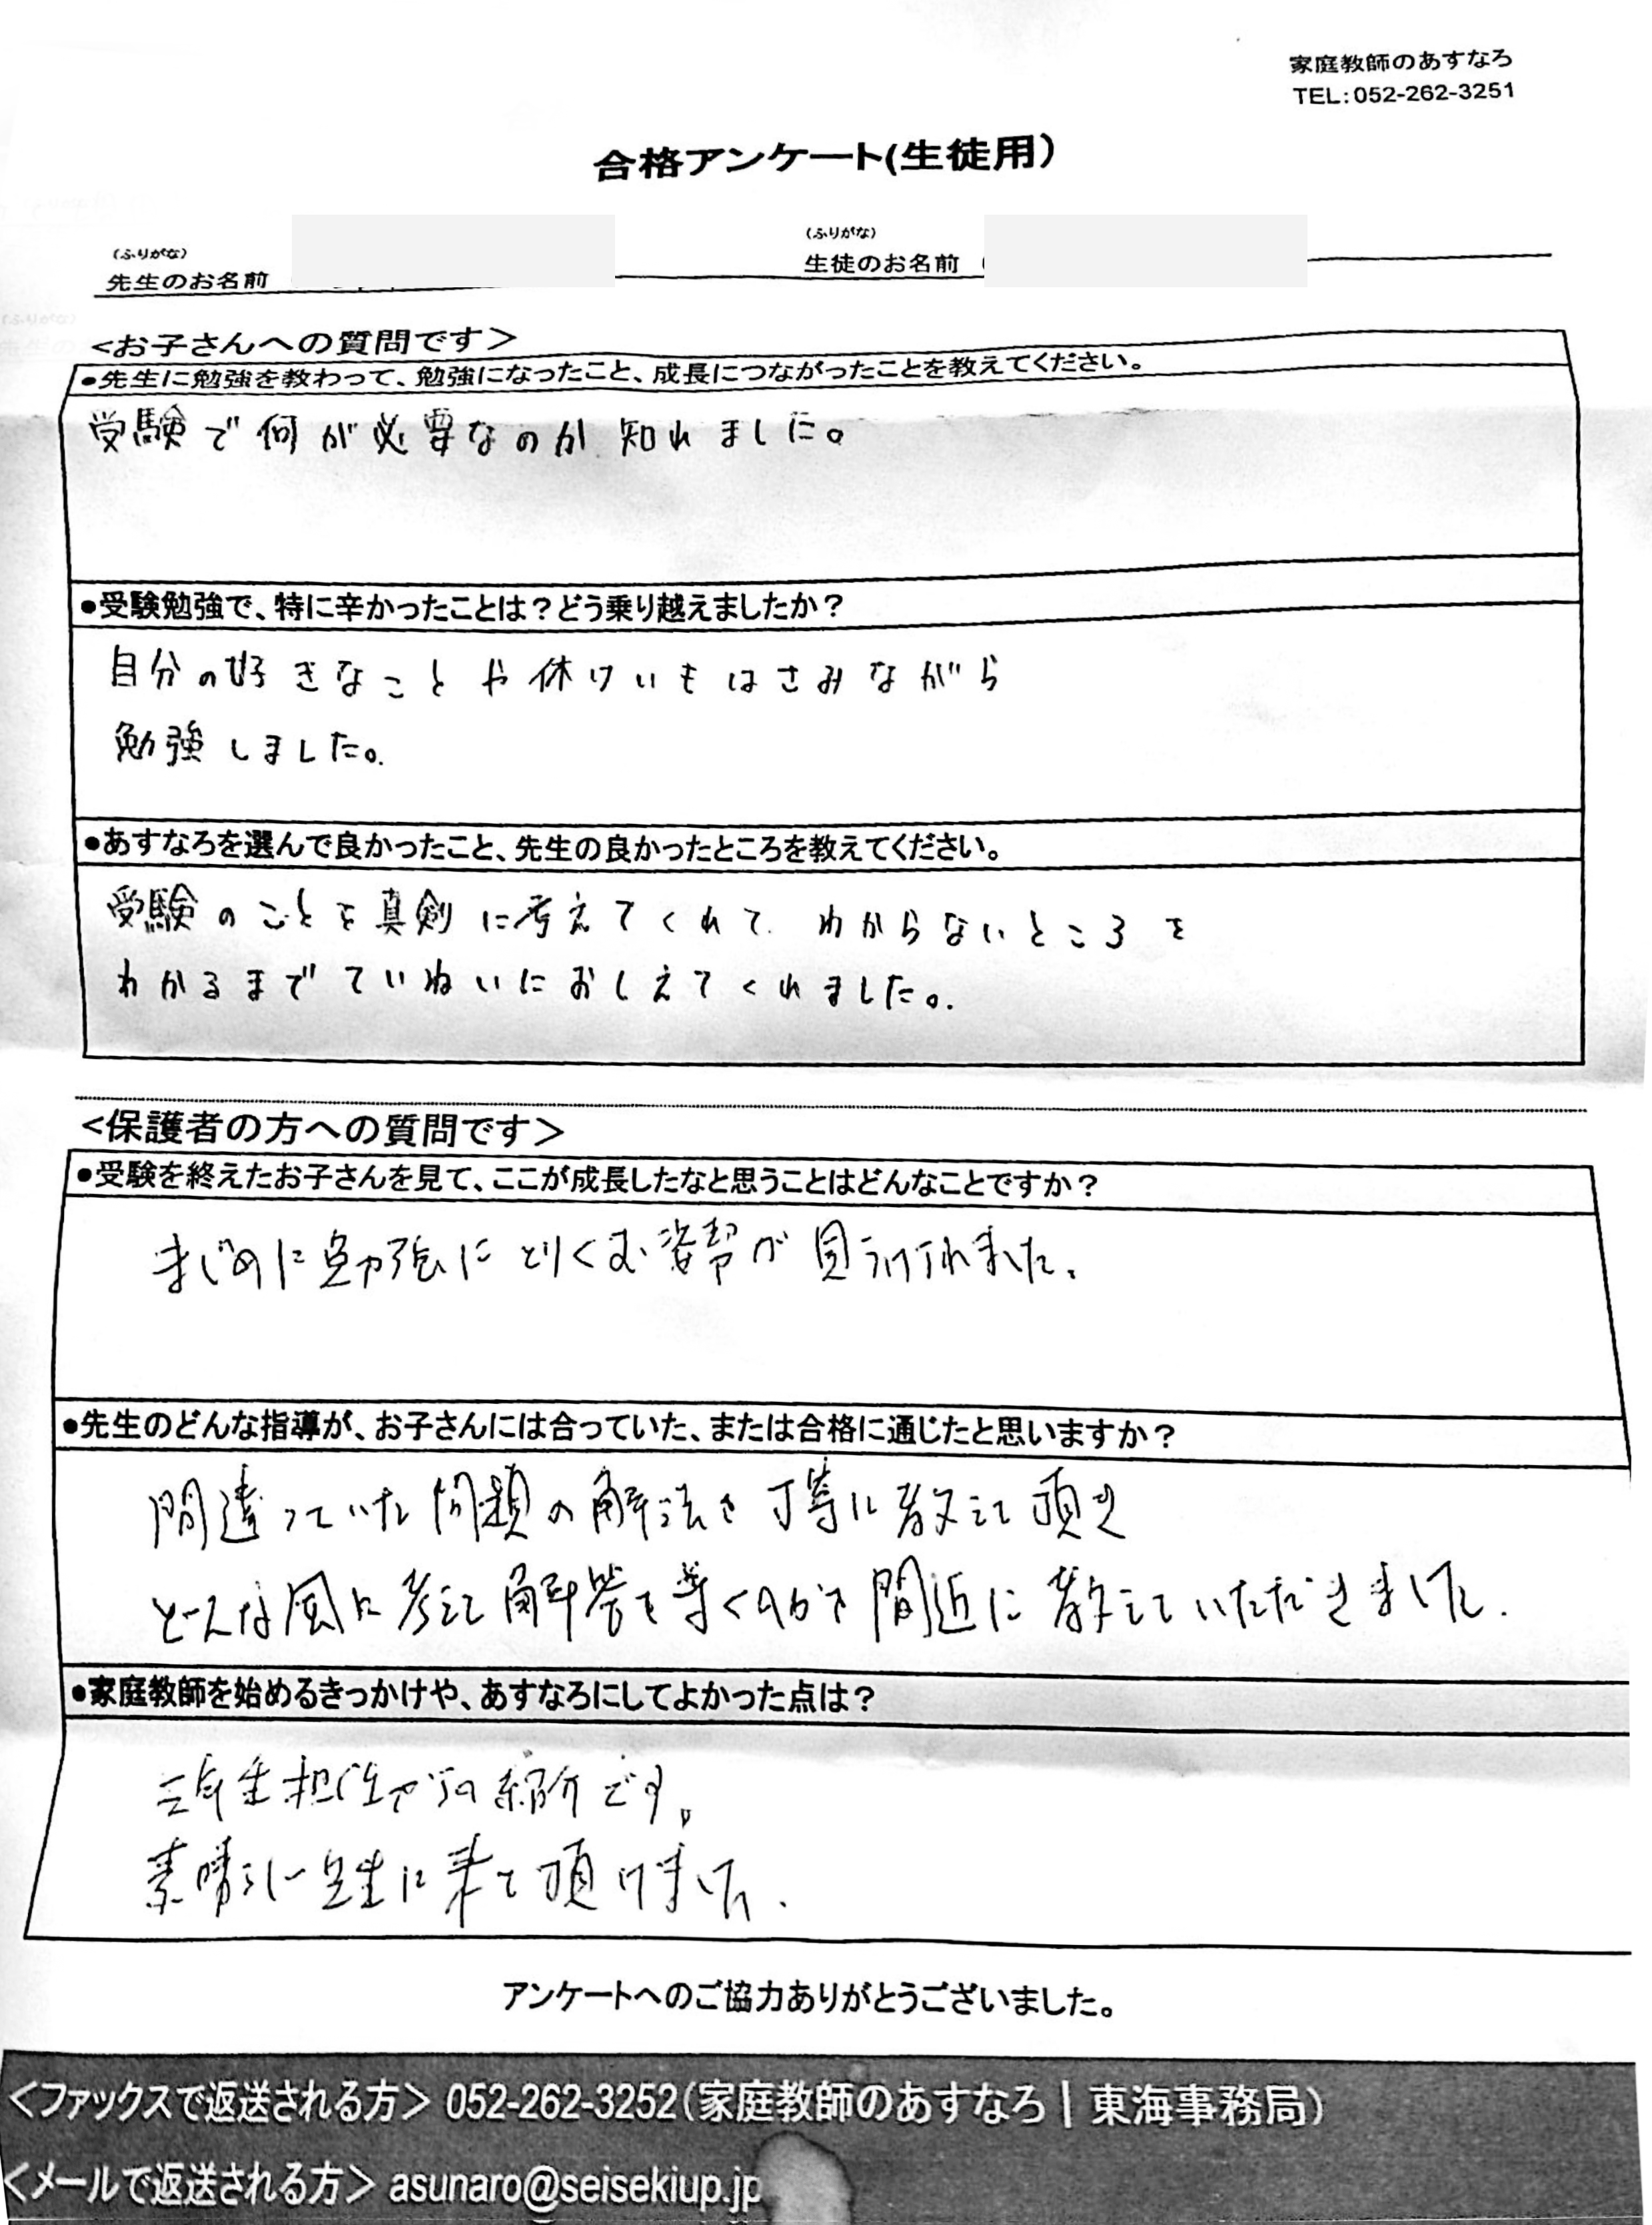 家庭教師のあすなろ
TEL:052-262-3251
合格アンケート(生徒用)
(ふりがな)
先生のお名前
(ふりがな)
生徒のお名前
<お子さんへの質問です>
●先生に勉強を教わって、勉強になったこと、成長につながったことを教えてください。
受験で何が必要なのか知れました。
●受験勉強で、特に辛かったことは？どう乗り越えましたか？
自分の好きなことや休けいもはさみながら
勉強しました。
●あすなろを選んで良かったこと、先生の良かったところを教えてください。
受験のことを真剣に考えてくれて、わからないところを
わかるまでていねいにおしえてくれました。
<保護者の方への質問です>
●受験を終えたお子さんを見て、ここが成長したなと思うことはどんなことですか？
まじめに勉強にとりくむ姿勢が見うけられました。
●先生のどんな指導が、お子さんには合っていた、または合格に通じたと思いますか？
間違っていた問題の解法を丁寧に教えて頂き
どんな風に考えて解答を導くのかを間近に教えていただきました。
●家庭教師を始めるきっかけや、あすなろにしてよかった点は？
三年生担任からの紹介です。
素晴らしい先生に来て頂けました。
アンケートへのご協力ありがとうございました。
<ファックスで返送される方> 052-262-3252(家庭教師のあすなろ | 東海事務局)
<メールで返送される方> asunaro@seisekiup.jp